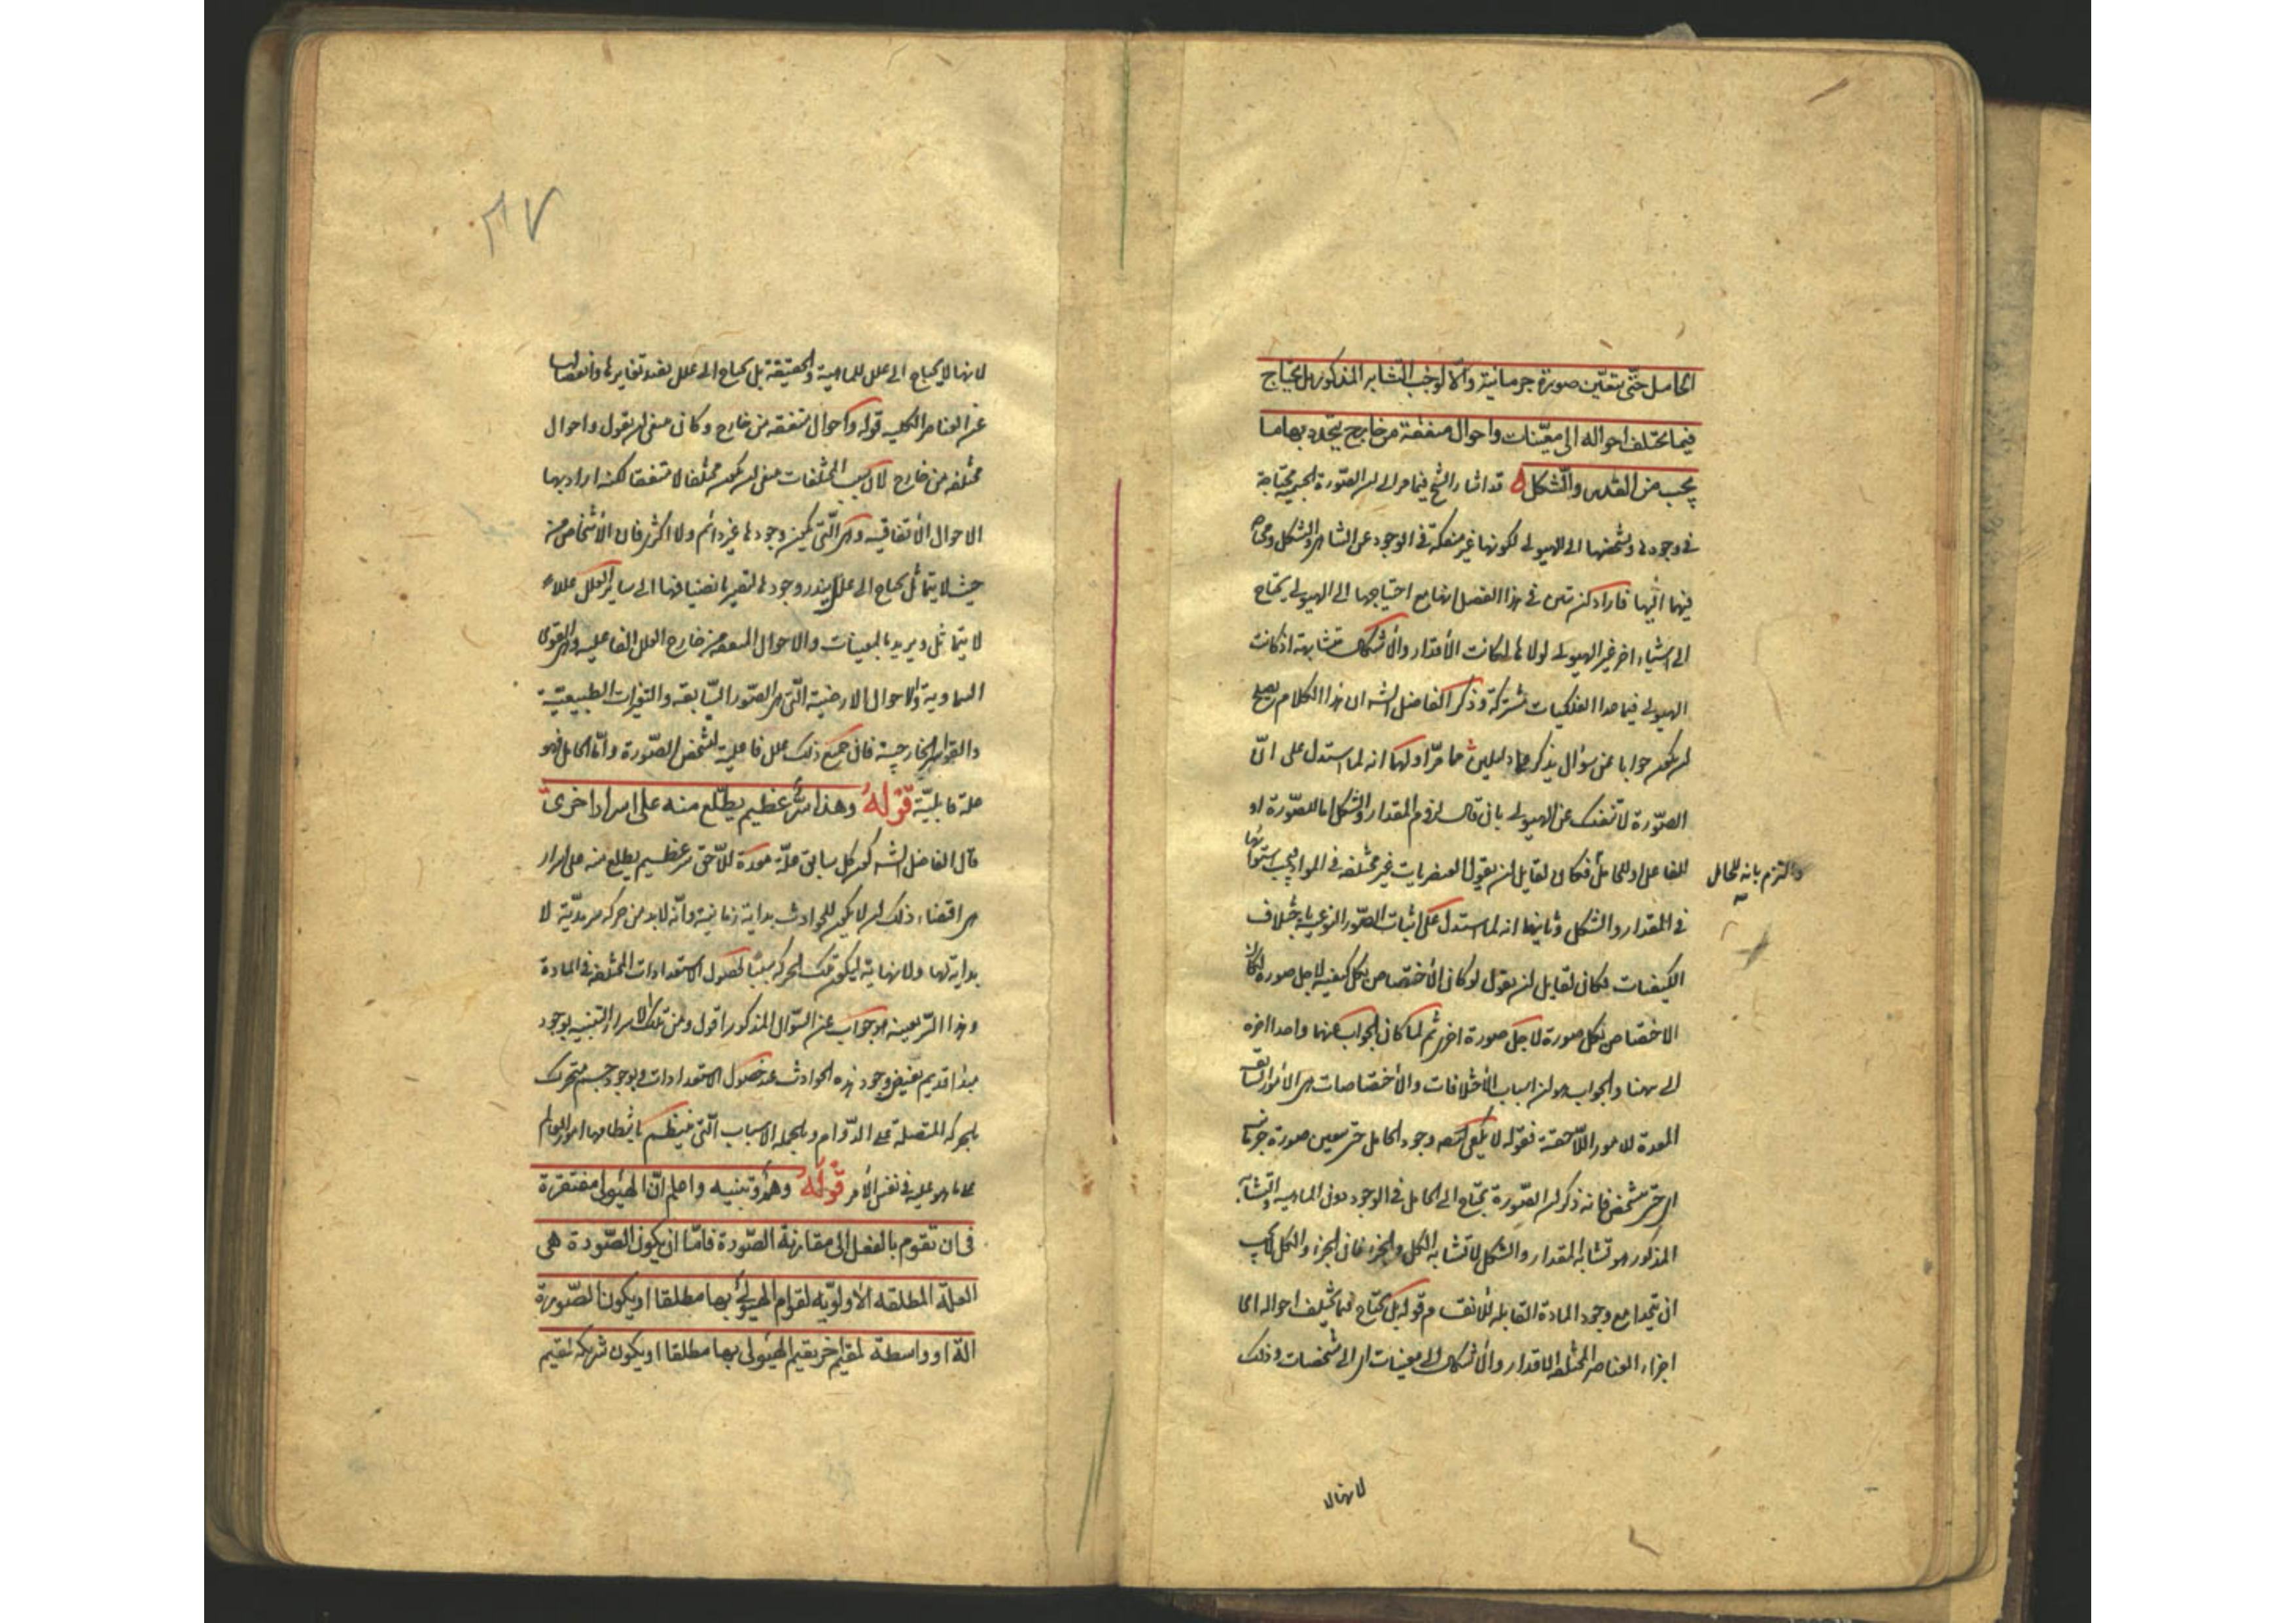 الحامل حتّى يتعيّن صورة جرمانية والّا لوجب التشابه المذكور بل يحتاج
فيما يختلف احواله الى معيّنات واحوال متفقة من خارج يتحدد بها ما
يجب من القدر والشكل قد اشار الشيخ فيما مر الى ان الصّورة الجسمية محتاجة
فى وجودها وتشخصها الى الهيولى لكونها غير منفكة فى الوجود عن التناهى والتشكل
فيهما اليها فاراد ان يبين فى هذا الفصل انها مع احتياجها الى الهيولى يحتاج
الى اشياء اخر غير الهيولى لولاها لكانت الأقدار والأشكال متشابهة اذ كانت
الهيولى فيما عدا الفلكيات مشتركة وذكر الفاضل الشه ان هذا الكلام يصلح
ان يكون جوابا عن سؤال يذكر على دليلين مما مرّ اولهما انه لما استدل على انّ
الصّورة لا تنفك عن الهيولى بان قال لزوم المقدار والشكل اما للصّورة او
للفاعل او للحامل فكان لقايل ان يقول العنصريات غير مختلفة فى المواد فيجب استواؤها
والتزم بانه للحامل
فى المقدار والشكل وثانيهما انه لما استدل على اثبات الصّور النوعية باختلاف
الكيفيات فكان لقايل ان يقول لو كان الأختصاص بكل كيفية لاجل صورة لكان
الاختصاص بكل صورة لاجل صورة اخرى ثم لما كان الجواب عنهما واحدا اخره
الى ههنا والجواب هو ان اسباب الأختلافات والأختصاصات هى الأمور السابقة
المعدة للامور اللّاحقة فقوله لا يكفى ايضا وجود الحامل حتى يتعين صورة جرمانية
اى حتى يتشخص فانه ذكر ان الصّورة يحتاج الى الحامل فى الوجود دون الماهية والتشابه
المذكور هو تشابه المقدار والشكل لا تشابه الكل والجزء فان الجزء والكل لا يجب
ان يتحدا مع وجود المادة القابلة للانقسام وقوله بل يحتاج فيما يختلف احواله اى
اجزاء العناصر المختلفة الاقدار والأشكال الى معينات اى الى مشخصات وذلك
لانها لا
٣٧
لانها لا يحتاج الى علل للماهية والحقيقة بل يحتاج الى علل يفيد تغايرها وانفصالها
عن العناصر الكلية قوله واحوال متفقة من خارج وكان ينبغى ان يقول واحوال
مختلفة من خارج لان سبب المختلفات ينبغى ان يكون مختلفا لا متفقا لكنه اراد بها
الاحوال الأتفاقية وهى الّتى يكون وجودها غير دائم ولا اكثرى فان الأشخاص من
حيث لا يتماثل يحتاج الى علل يندر وجودها لتصير بانضيافها الى ساير العلل عللا
لا يتماثل ويريد بالمعينات والاحوال المتفقة من خارج العلل الفاعلية وهى القوى
السماوية والاحوال الارضية الّتى هى الصّور السّابقة والتغيرات الطبيعيّة
والقواسر الخارجية فان جميع ذلك علل فاعلية لتشخص الصّورة وامّا الحامل فهو
علة قابليّة قوله وهذا سرّ عظيم يطّلع منه على اسرار اخرى
قال الفاضل الشه كون كل سابق علّة معدة للّاحق سر عظيم يطلع منه على اسرار
هى اقتضاء ذلك ان لا يكون للحوادث بداية زمانية وانّه لابد من حركة سرمديّة لا
بداية لها ولا نهاية ليكون تلك الحركة سببا لحصول الاستعدادات المختلفة فى المادة
وهذا السّر بعينه هو جواب عن السّؤال المذكور اقول ومن تلك الاسرار التنبيه لوجود
مبدا قديم يفيض وجود هذه الحوادث عند حصول الاستعدادات ولوجود جسم متحرك
بالحركة المتصلة على الدّوام وبالجملة الاسباب الّتى ينتظم بانتظامها امور العالم
على ما هو عليه فى نفس الأمر قوله وهم وتنبيه واعلم انّ الهيولى مفتقرة
فى ان تقوم بالفعل الى مقارنة الصّورة فامّا ان يكون الصّورة هى
العلّة المطلقة الأولويّة لقوام الهيولى بها مطلقا او يكون الصّورة
الة او واسطة لمقيم اخر يقيم الهيولى بها مطلقا او يكون شريكة لمقيم